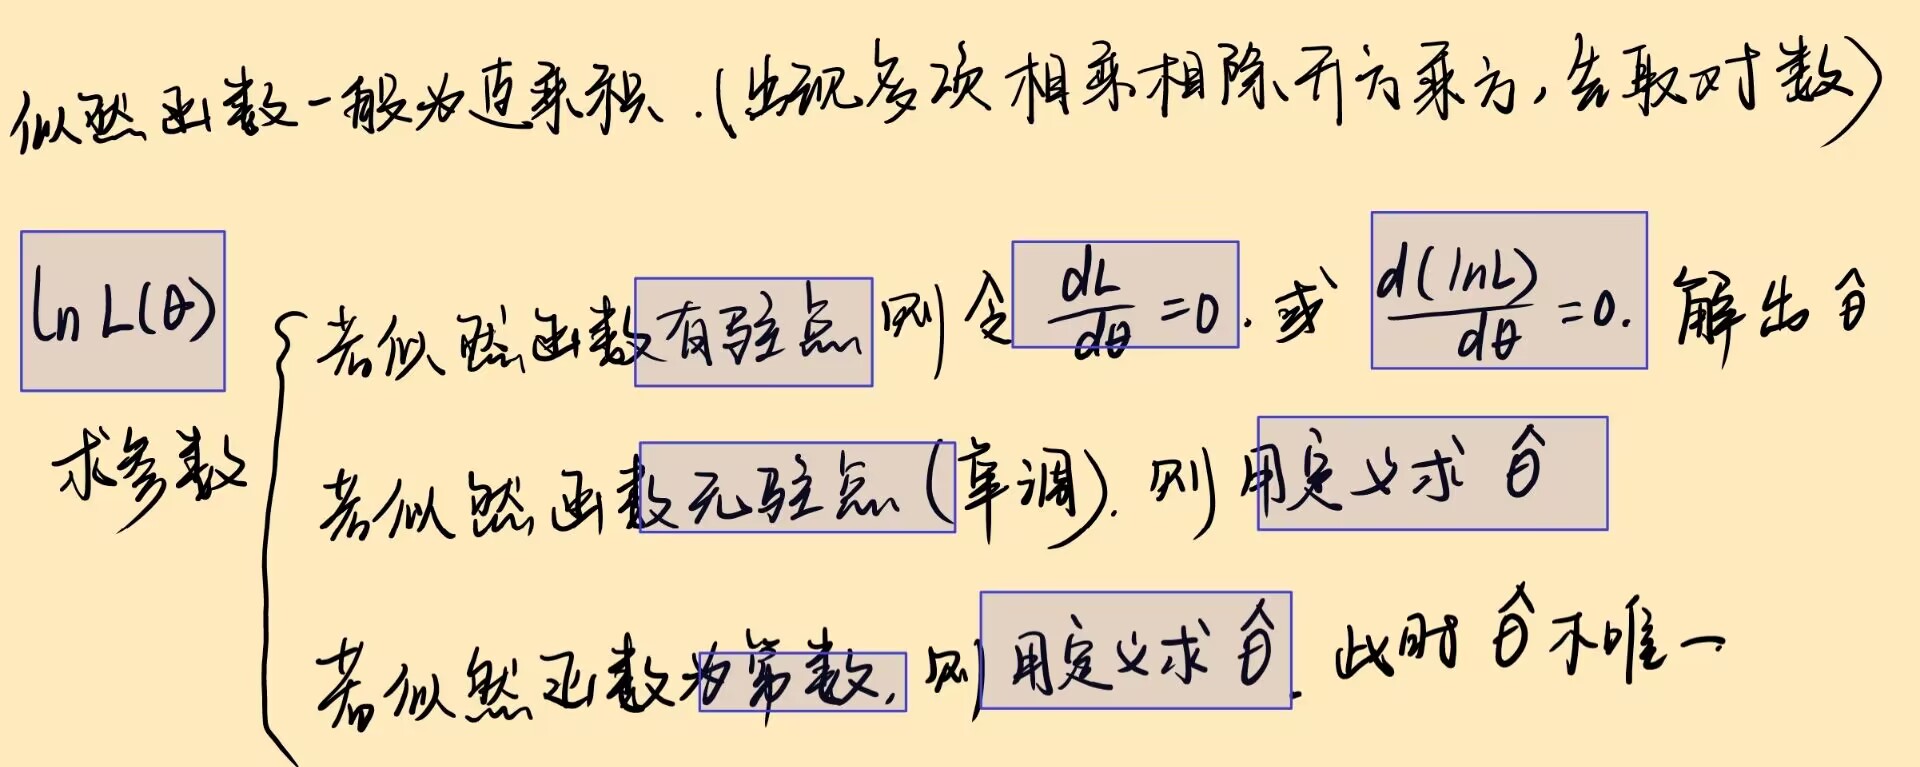 似然函数一般为连乘积.(出现多项相乘相除开方乘方,先取对数)
ln L(θ)
求参数
若似然函数有驻点则令 dL/dθ =0. 或 d(lnL)/dθ =0. 解出 θ̂
若似然函数无驻点(单调). 则用定义求 θ̂
若似然函数为常数, 则用定义求 θ̂. 此时 θ̂ 不唯一